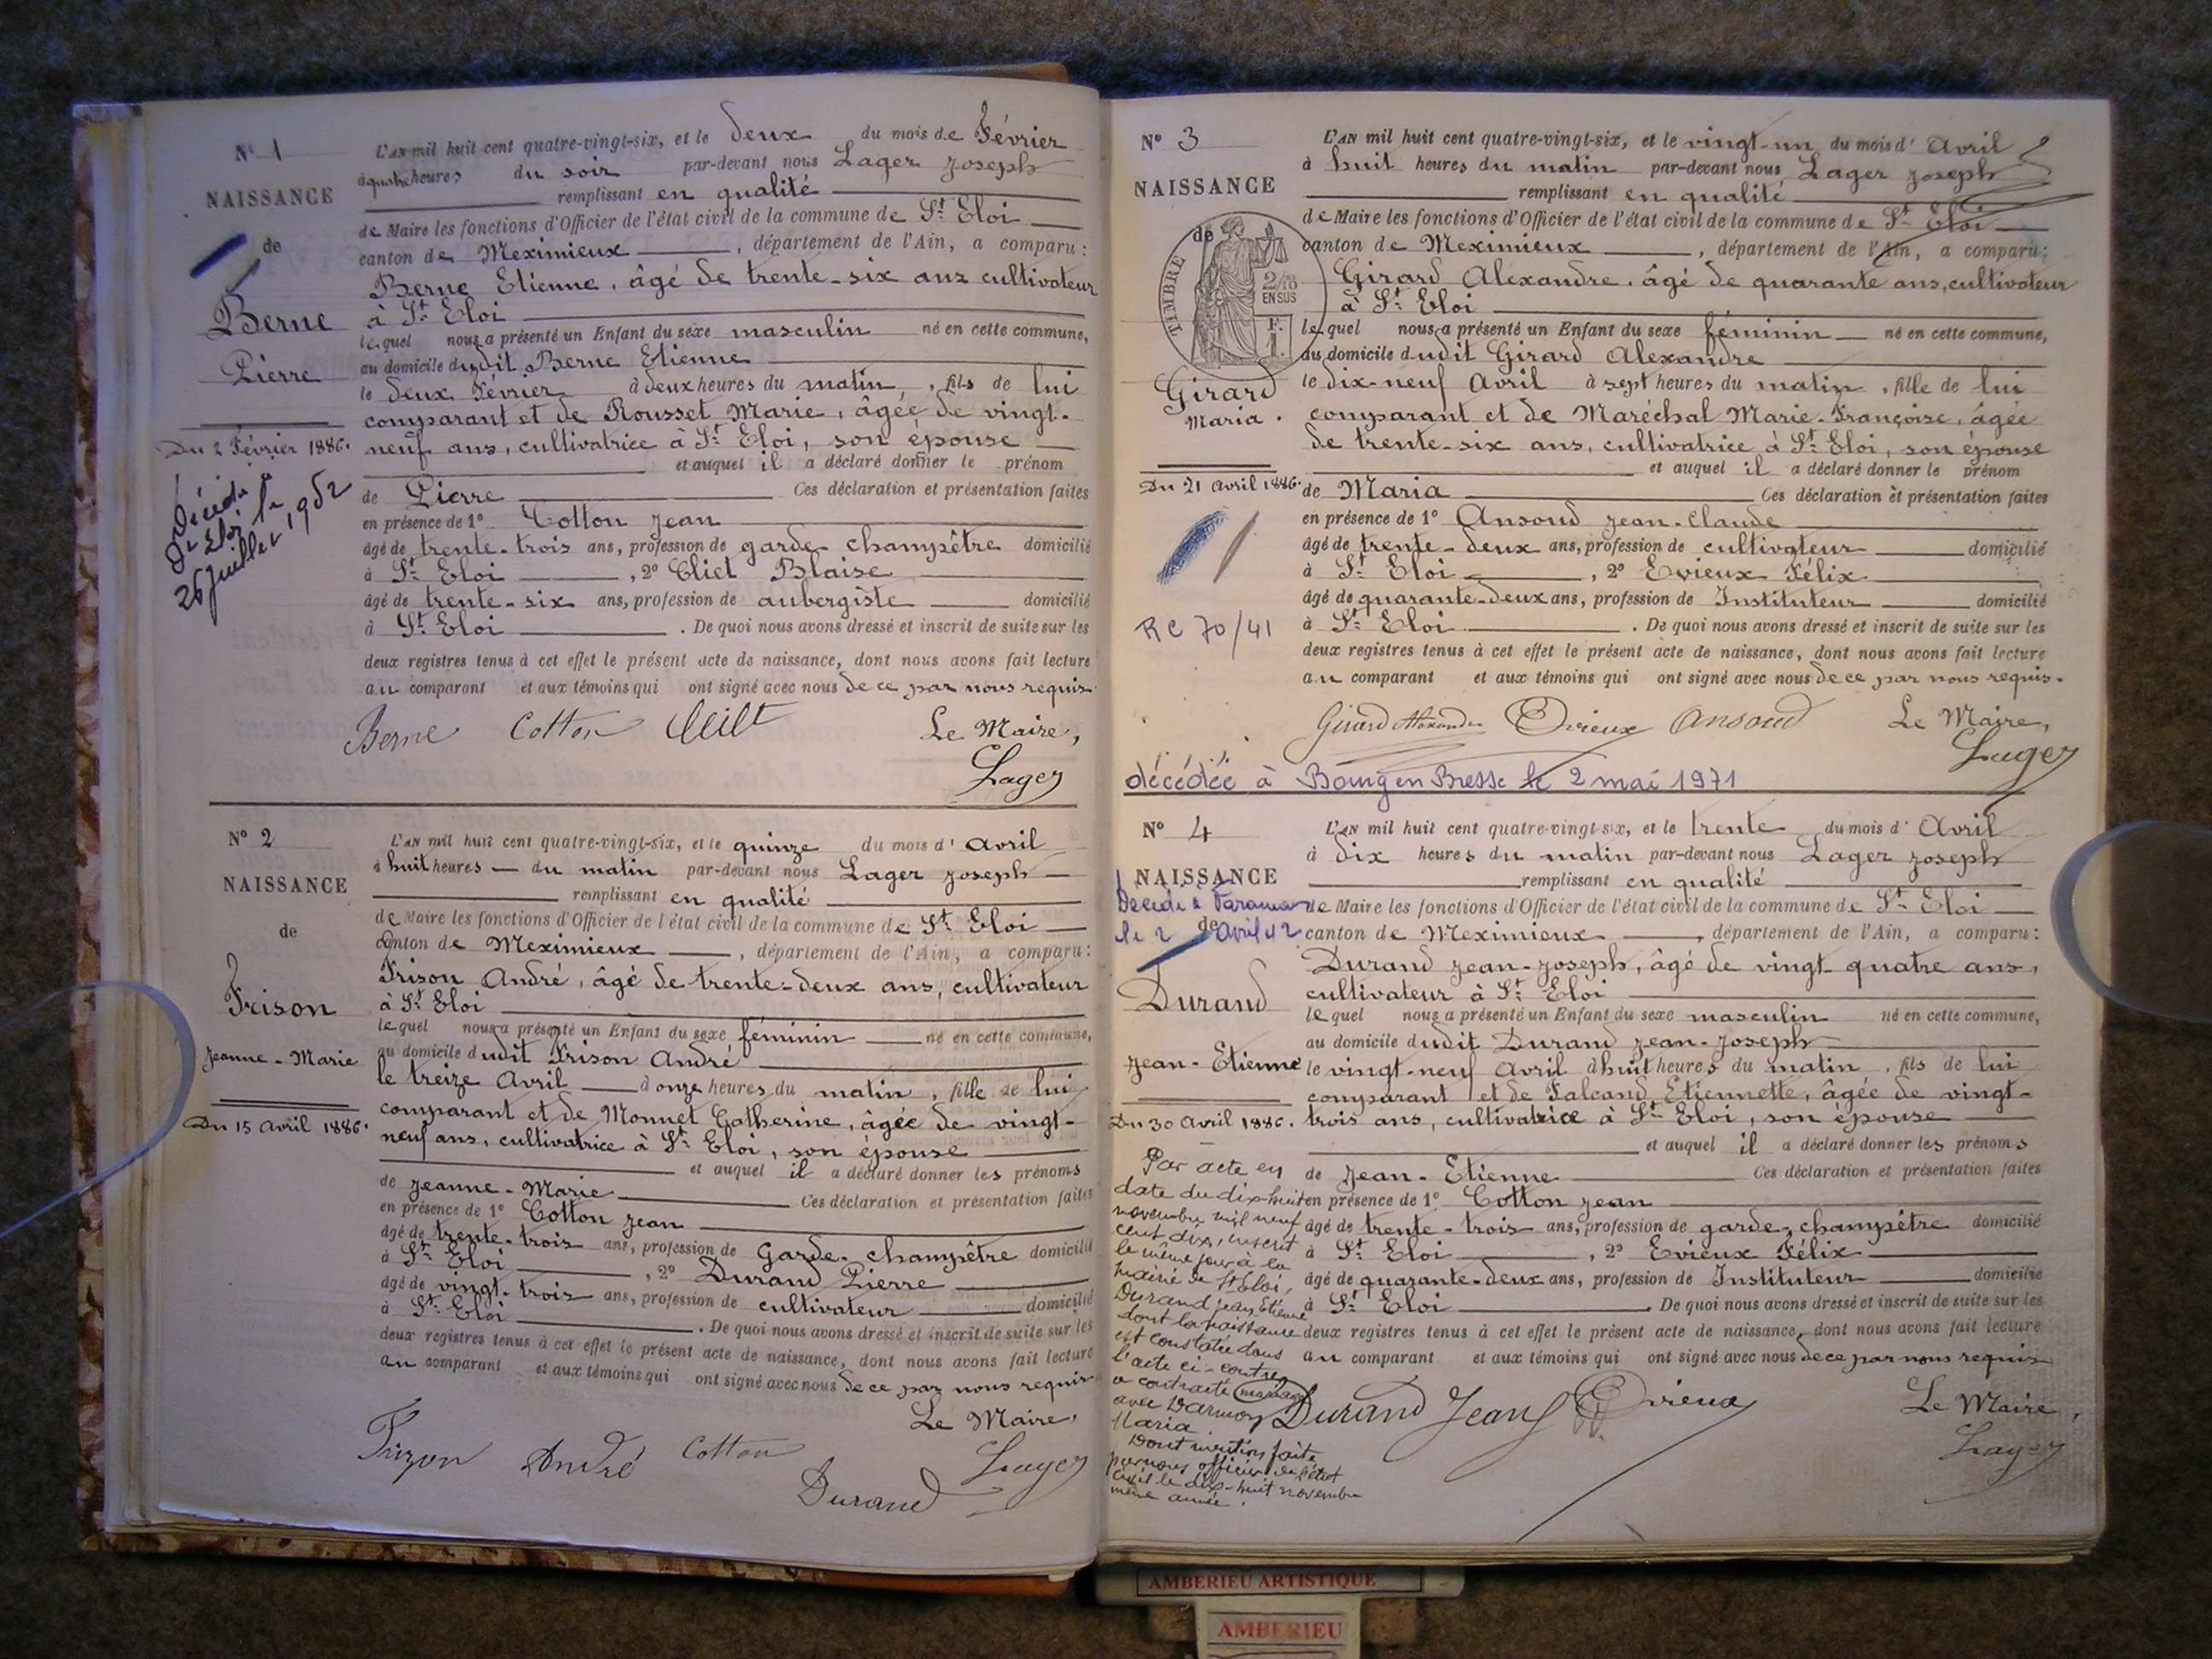 N° 1
NAISSANCE
de
Berne
Pierre
Du 2 Février 1886.
Décédé à
St Eloi le
26 juillet 1952
L'AN mil huit cent quatre-vingt-six, et le deux du mois de Février
à quatre heures du soir par-devant nous Lager Joseph
remplissant en qualité
de Maire les fonctions d'Officier de l'état civil de la commune de St Eloi
canton de Meximieux, département de l'Ain, a comparu:
Berne Etienne, âgé de trente-six ans cultivateur
à St Eloi
lequel nous a présenté un Enfant du sexe masculin né en cette commune,
au domicile dudit Berne Etienne
le deux Février à deux heures du matin, fils de lui
comparant et de Rousset Marie, âgée de vingt-
neuf ans, cultivatrice à St Eloi, son épouse
et auquel il a déclaré donner le prénom
de Pierre Ces déclaration et présentation faites
en présence de 1° Cotton Jean
âgé de trente-trois ans, profession de garde-champêtre domicilié
à St Eloi, 2° Cliet Blaise
âgé de trente-six ans, profession de aubergiste domicilié
à St Eloi. De quoi nous avons dressé et inscrit de suite sur les
deux registres tenus à cet effet le présent acte de naissance, dont nous avons fait lecture
au comparant et aux témoins qui ont signé avec nous de ce par nous requis
Berne Cotton Le Maire,
Lager
N° 2
NAISSANCE
de
Frison
Jeanne-Marie
Du 15 Avril 1886.
L'AN mil huit cent quatre-vingt-six, et le quinze du mois d'Avril
à huit heures du matin par-devant nous Lager Joseph
remplissant en qualité
de Maire les fonctions d'Officier de l'état civil de la commune de St Eloi
canton de Meximieux, département de l'Ain, a comparu:
Frison André, âgé de trente-deux ans, cultivateur
à St Eloi
lequel nous a présenté un Enfant du sexe féminin né en cette commune,
au domicile dudit Frison André
le treize Avril à onze heures du matin, fille de lui
comparant et de Monnet Catherine, âgée de vingt-
neuf ans, cultivatrice à St Eloi, son épouse
et auquel il a déclaré donner les prénoms
de Jeanne-Marie Ces déclaration et présentation faites
en présence de 1° Cotton Jean
âgé de trente-trois ans, profession de Garde-champêtre domicilié
à St Eloi, 2° Durand Pierre
âgé de vingt-trois ans, profession de cultivateur domicilié
à St Eloi. De quoi nous avons dressé et inscrit de suite sur les
deux registres tenus à cet effet le présent acte de naissance, dont nous avons fait lecture
au comparant et aux témoins qui ont signé avec nous de ce par nous requis
Le Maire,
Frizon André Cotton Lager
Durand
N° 3
NAISSANCE
de
TIMBRE
2/10
EN SUS
F.
1.
Girard
Maria.
Du 21 Avril 1886.
RC 70/41
L'AN mil huit cent quatre-vingt-six, et le vingt-un du mois d'Avril
à huit heures du matin par-devant nous Lager Joseph
remplissant en qualité
de Maire les fonctions d'Officier de l'état civil de la commune de St Eloi
canton de Meximieux, département de l'Ain, a comparu:
Girard Alexandre, âgé de quarante ans, cultivateur
à St Eloi
lequel nous a présenté un Enfant du sexe féminin né en cette commune,
au domicile dudit Girard Alexandre
le dix-neuf Avril à sept heures du matin, fille de lui
comparant et de Maréchal Marie-Françoise, âgée
de trente-six ans, cultivatrice à St Eloi, son épouse
et auquel il a déclaré donner le prénom
de Maria Ces déclaration et présentation faites
en présence de 1° Ansoud Jean-Claude
âgé de trente-deux ans, profession de cultivateur domicilié
à St Eloi, 2° Evieux Félix
âgé de quarante-deux ans, profession de Instituteur domicilié
à St Eloi. De quoi nous avons dressé et inscrit de suite sur les
deux registres tenus à cet effet le présent acte de naissance, dont nous avons fait lecture
au comparant et aux témoins qui ont signé avec nous de ce par nous requis.
Girard Alexandre Evieux Ansoud Le Maire,
Lager
décédée à Bourg en Bresse le 2 mai 1971
N° 4
NAISSANCE
Décédé à
le 2 avril 42
de
Durand
Jean-Etienne
Du 30 Avril 1886.
Par acte en
date du dix-huit
novembre mil neuf
cent dix, inscrit
le même jour à la
mairie de St Eloi,
Durand Jean Etienne
dont la naissance
est constatée dans
l'acte ci-contre
a contracté mariage
avec
Maria.
Dont mention faite
par nous officier de l'état
civil le dix-huit novembre
même année.
L'AN mil huit cent quatre-vingt-six, et le trente du mois d'Avril
à dix heures du matin par-devant nous Lager Joseph
remplissant en qualité
de Maire les fonctions d'Officier de l'état civil de la commune de St Eloi
canton de Meximieux, département de l'Ain, a comparu:
Durand Jean-Joseph, âgé de vingt-quatre ans,
cultivateur à St Eloi
lequel nous a présenté un Enfant du sexe masculin né en cette commune,
au domicile dudit Durand Jean-Joseph
le vingt-neuf Avril à huit heures du matin, fils de lui
comparant et de Falcand Etiennette, âgée de vingt-
trois ans, cultivatrice à St Eloi, son épouse
et auquel il a déclaré donner les prénoms
de Jean-Etienne Ces déclaration et présentation faites
en présence de 1° Cotton Jean
âgé de trente-trois ans, profession de garde-champêtre domicilié
à St Eloi, 2° Evieux Félix
âgé de quarante-deux ans, profession de Instituteur domicilié
à St Eloi. De quoi nous avons dressé et inscrit de suite sur les
deux registres tenus à cet effet le présent acte de naissance, dont nous avons fait lecture
au comparant et aux témoins qui ont signé avec nous de ce par nous requis
Durand Jean Evieux Le Maire,
Lager
AMBERIEU ARTISTIQUE
AMBERIEU